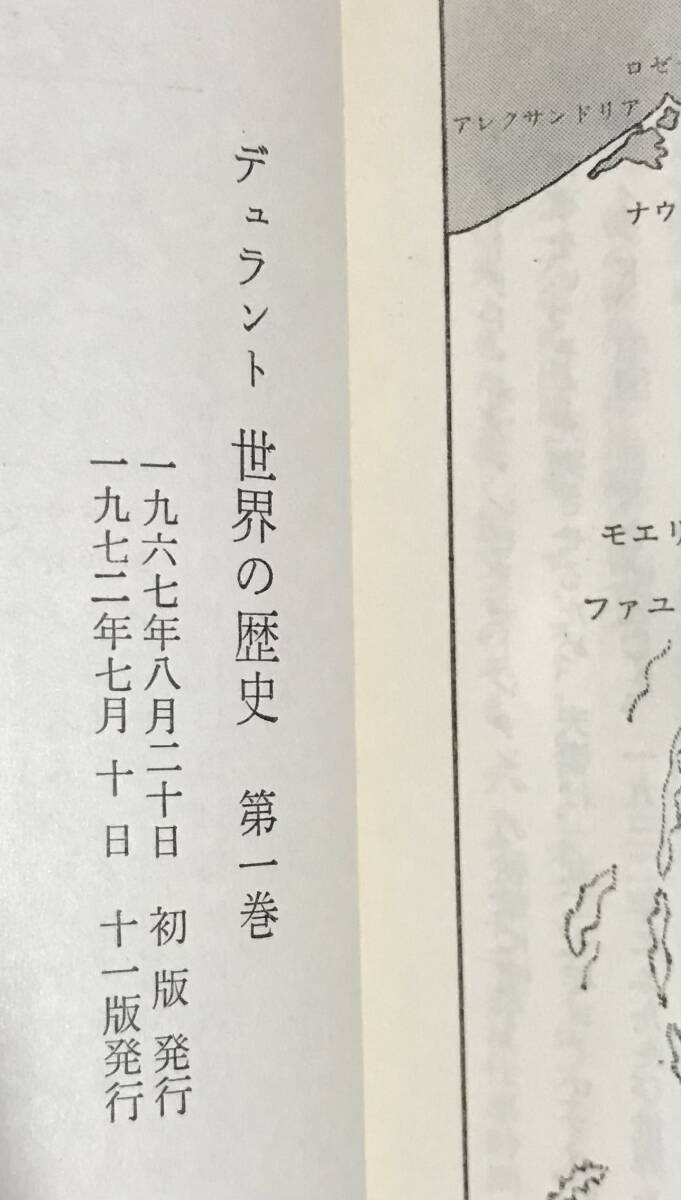 デュラント 世界の歴史 第一巻
一九六七年八月二十日 初版発行
一九七二年七月十日 十一版発行
ロゼ
アレクサンドリア
ナウ
モエリ
ファユ